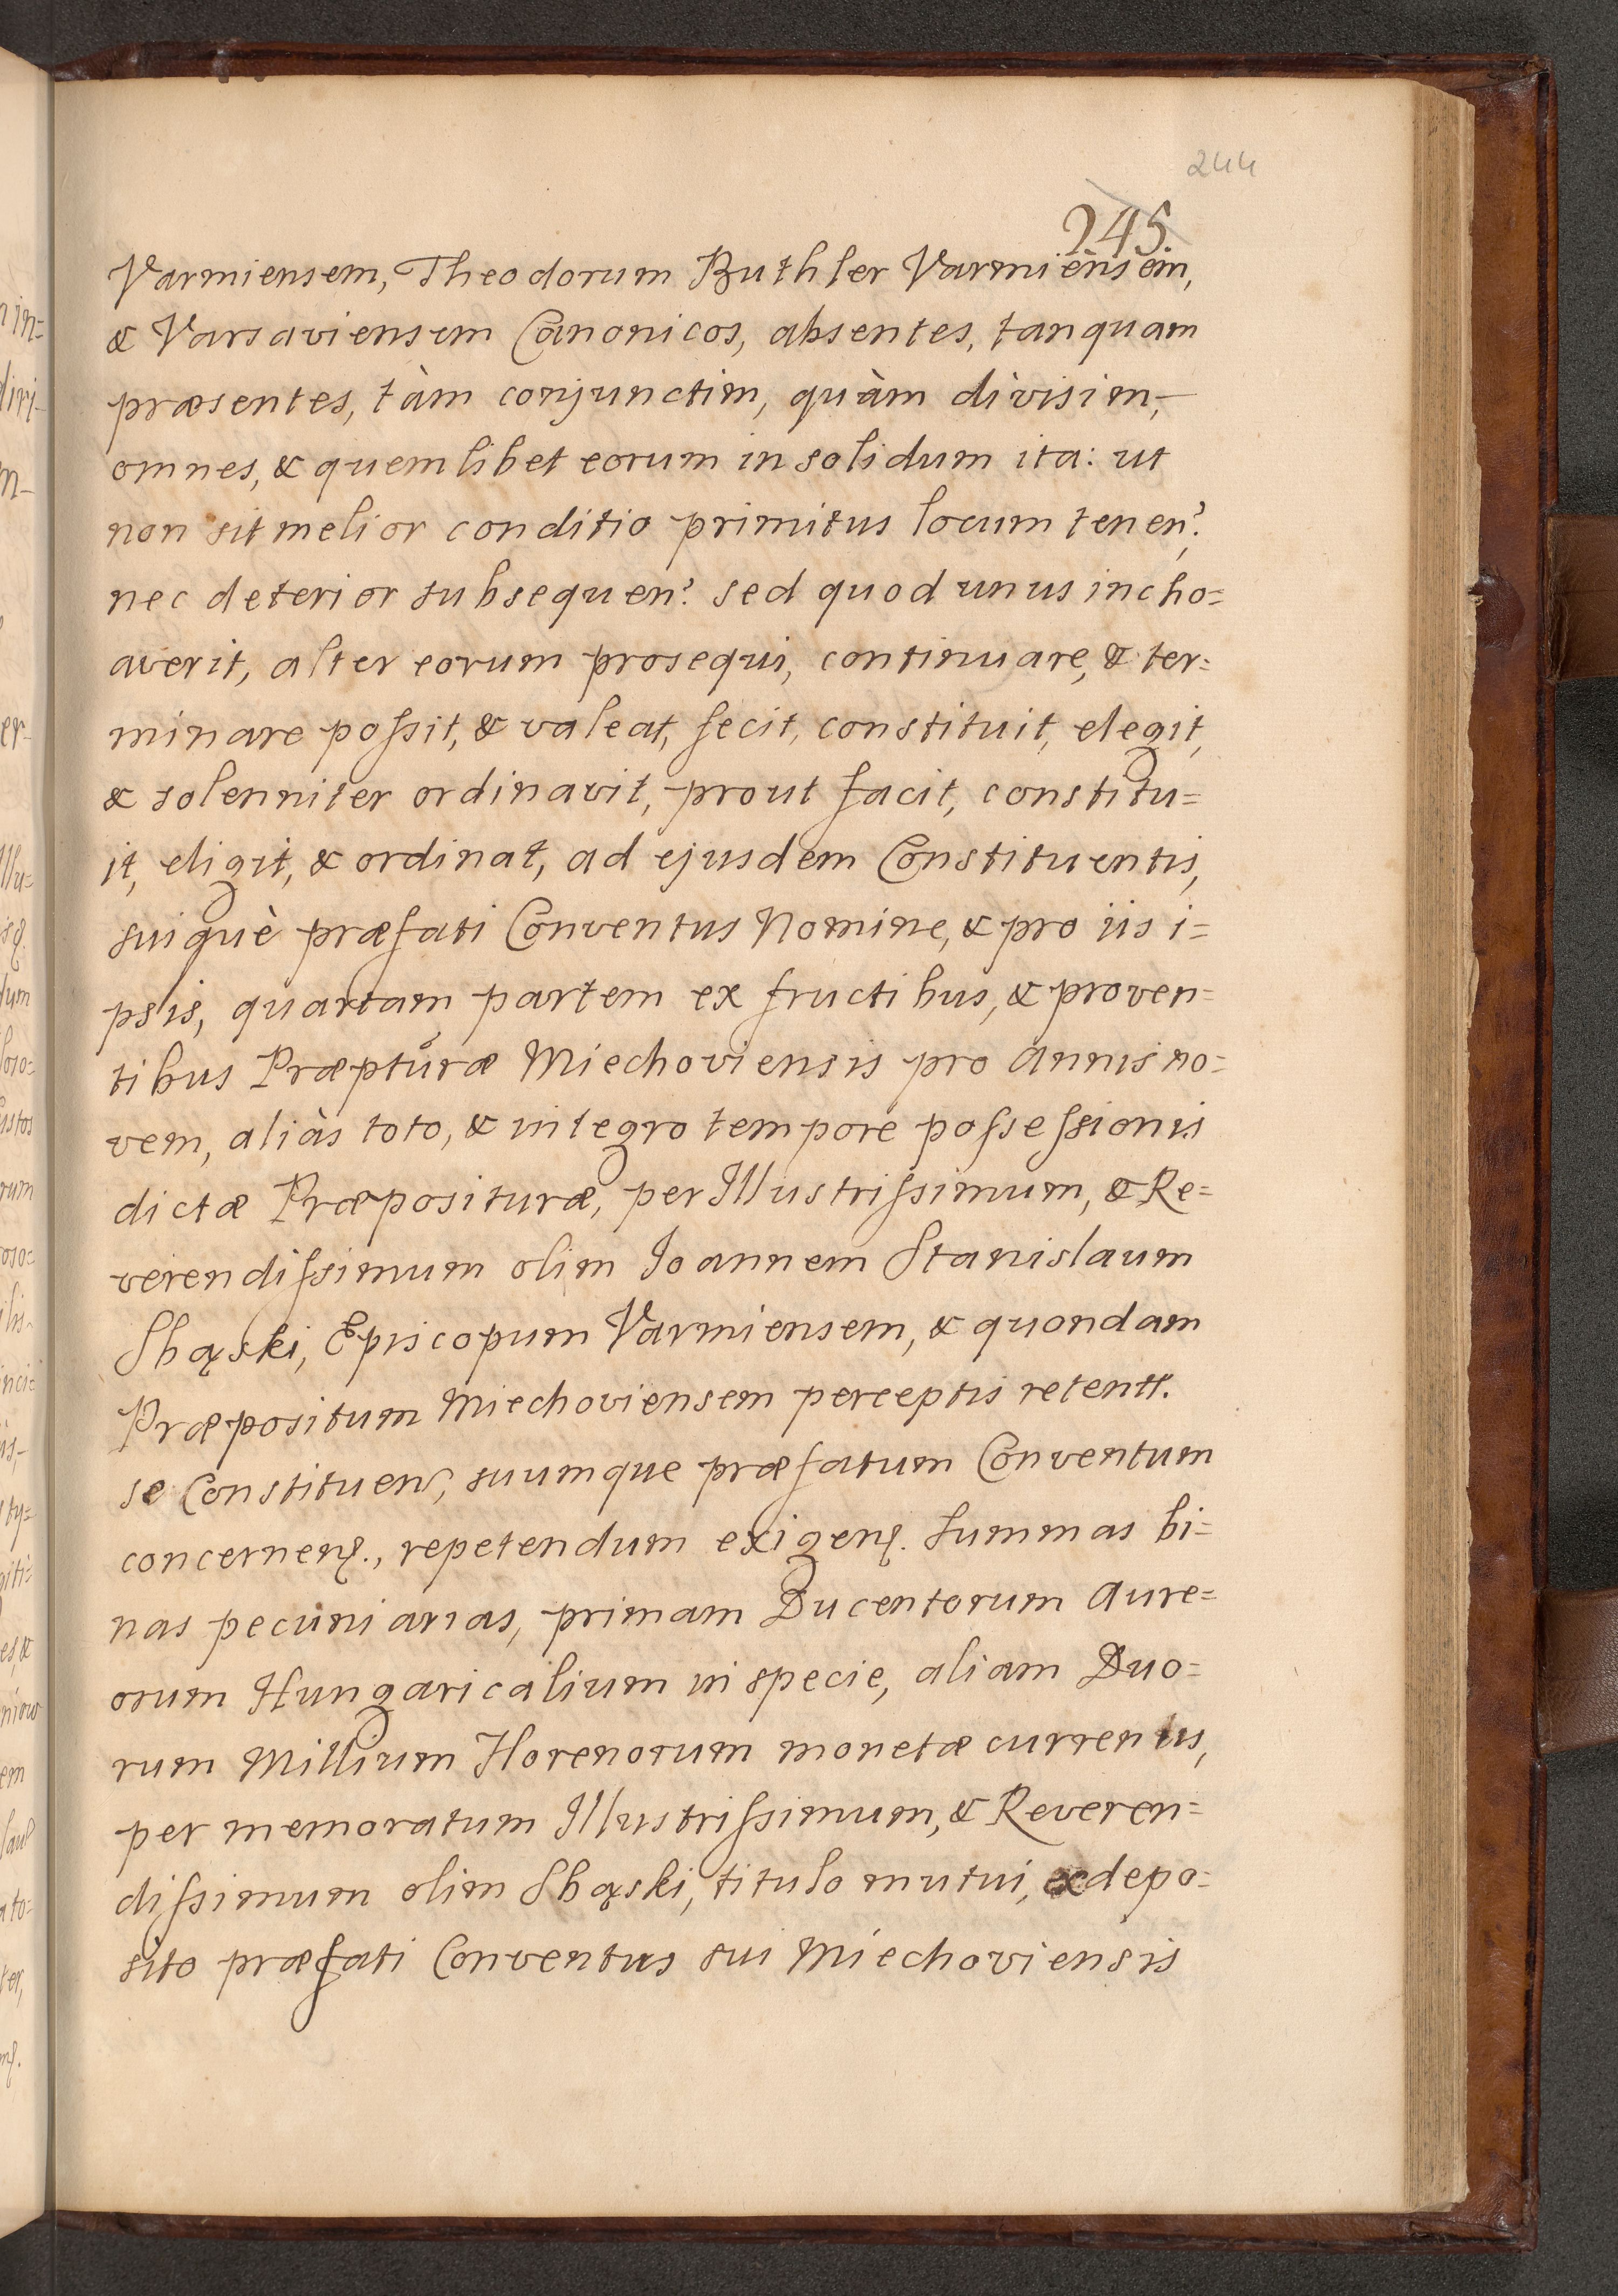 244
245.
Varmiensem, Theodorum Buthler Varmiensem,
& Varsaviensem Canonicos, absentes, tanquam
præsentes, tàm conjunctim, quàm divisim,
omnes, & quemlibet eorum in solidum ita: ut
non sit melior conditio primitus locum tenen?
nec deterior subsequen? sed quod unus incho=
averit, alter eorum prosequi, continuare, & ter=
minare possit, & valeat, fecit, constituit, elegit,
& solenniter ordinavit, prout facit, constitu=
it, eligit, & ordinat, ad ejusdem Constituentis,
suiquè præfati Conventus Nomine, & pro iis i=
psis, quartam partem ex fructibus, & proven=
tibus Præptůræ Miechoviensis pro Annis no=
vem, aliàs toto, & integro tempore possessionis
dictæ Præposituræ, per Illustrissimum, & Re=
verendissimum olim Joannem Stanislaum
Sbąski, Episcopum Varmiensem, & quondam
Præpositum Miechoviensem perceptis retentt.
se Constituen, suumque præfatum Conventum
concernen., repetendum exigen. Summas bi=
nas pecuniarias, primam Ducentorum Aure=
orum Hungaricalium in specie, aliam Duo=
rum Millium Florenorum monetæ currentis,
per memoratum Illustrissimum, & Reveren=
dissimum olim Sbąski, titulo mutui, ex depo=
sito præfati Conventus sui Miechoviensis